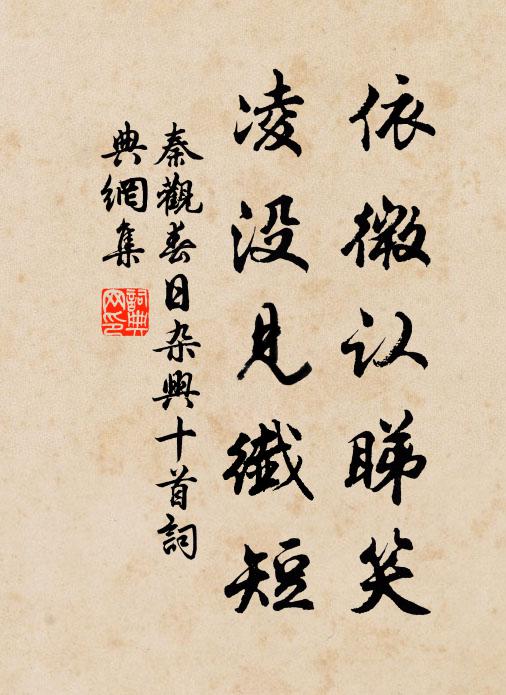 依微认睇笑
凌没见纖短
秦觀春日杂興十首詞
典網集
詞典网印